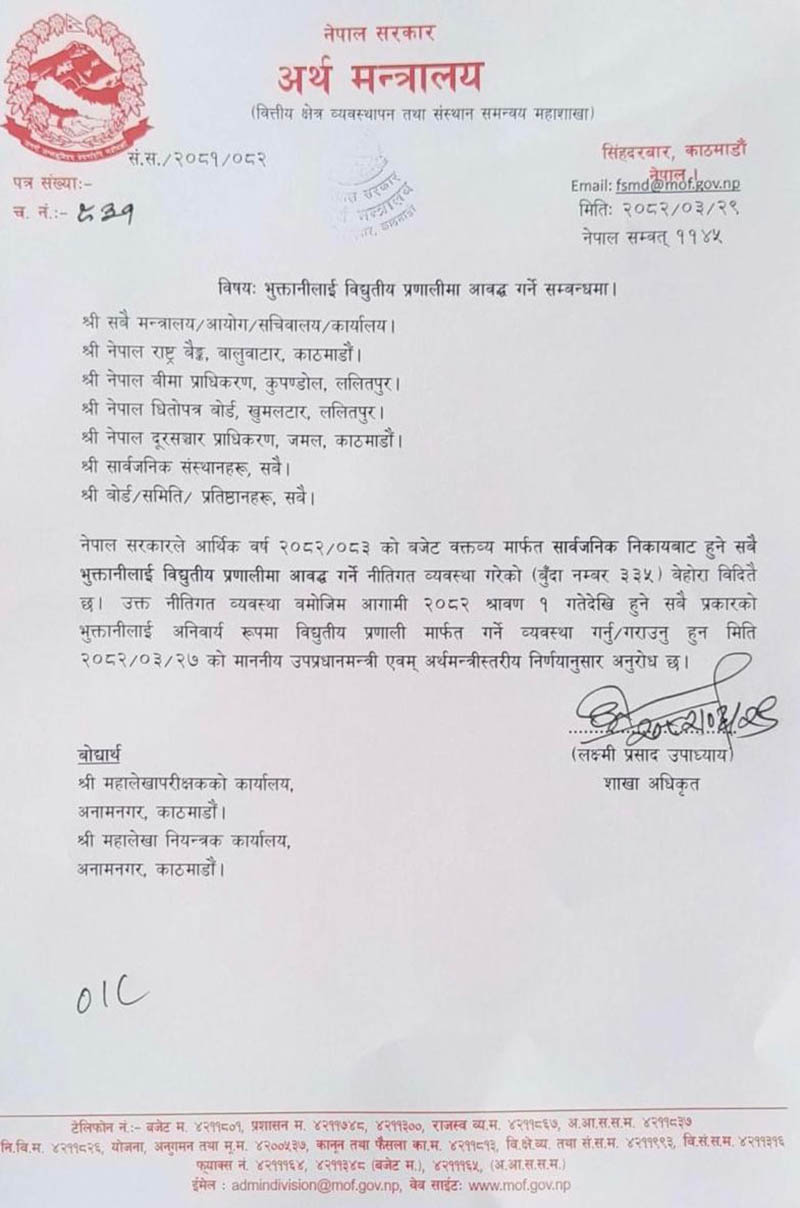 नेपाल सरकार
अर्थ मन्त्रालय
(वित्तीय क्षेत्र व्यवस्थापन तथा संस्थान समन्वय महाशाखा)
सं.स./२०८१/०८२
पत्र संख्याः-
च. नं.:- ८३१
सिंहदरबार, काठमाडौं
नेपाल ।
Email: fsmd@mof.gov.np
मितिः २०८२/०३/२९
नेपाल सम्वत् ११४५
विषयः भुक्तानीलाई विद्युतीय प्रणालीमा आवद्ध गर्ने सम्बन्धमा।
श्री सबै मन्त्रालय/आयोग/सचिवालय/कार्यालय।
श्री नेपाल राष्ट्र बैङ्क, बालुवाटार, काठमाडौं।
श्री नेपाल बीमा प्राधिकरण, कुपण्डोल, ललितपुर।
श्री नेपाल धितोपत्र बोर्ड, खुमलटार, ललितपुर।
श्री नेपाल दूरसञ्चार प्राधिकरण, जमल, काठमाडौं।
श्री सार्वजनिक संस्थानहरू, सबै।
श्री बोर्ड/समिति/ प्रतिष्ठानहरू, सबै।
नेपाल सरकारले आर्थिक वर्ष २०८२/०८३ को बजेट वक्तव्य मार्फत सार्वजनिक निकायबाट हुने सबै
भुक्तानीलाई विद्युतीय प्रणालीमा आवद्ध गर्ने नीतिगत व्यवस्था गरेको (बुँदा नम्बर ३३५) बेहोरा विदितै
छ। उक्त नीतिगत व्यवस्था बमोजिम आगामी २०८२ श्रावण १ गतेदेखि हुने सबै प्रकारको
भुक्तानीलाई अनिवार्य रूपमा विद्युतीय प्रणाली मार्फत गर्ने व्यवस्था गर्नु/गराउनु हुन मिति
२०८२/०३/२७ को माननीय उपप्रधानमन्त्री एवम् अर्थमन्त्रीस्तरीय निर्णयानुसार अनुरोध छ।
२०८२/०३/२९
(लक्ष्मी प्रसाद उपाध्याय)
शाखा अधिकृत
बोधार्थ
श्री महालेखापरीक्षकको कार्यालय,
अनामनगर, काठमाडौं।
श्री महालेखा नियन्त्रक कार्यालय,
अनामनगर, काठमाडौं।
O/C
टेलिफोन नं.:- बजेट म. ४२११८०१, प्रशासन म. ४२११७४८, ४२११३००, राजस्व व्य.म. ४२११८६७, अ.आ.स.स.म. ४२११८३७
नि.वि.म. ४२११८२६, योजना, अनुगमन तथा मू.म. ४२००५३७, कानून तथा फैसला का.म. ४२११८१३, वि.क्षे.व्य. तथा सं.स.म. ४२११९९३, वि.सं.स.म. ४२११३१६
फ्याक्स नं. ४२१११६४, ४२११३४८ (बजेट म.), ४२१११६५, (अ.आ.स.स.म.)
ईमेल : admindivision@mof.gov.np, वेव साईटः www.mof.gov.np